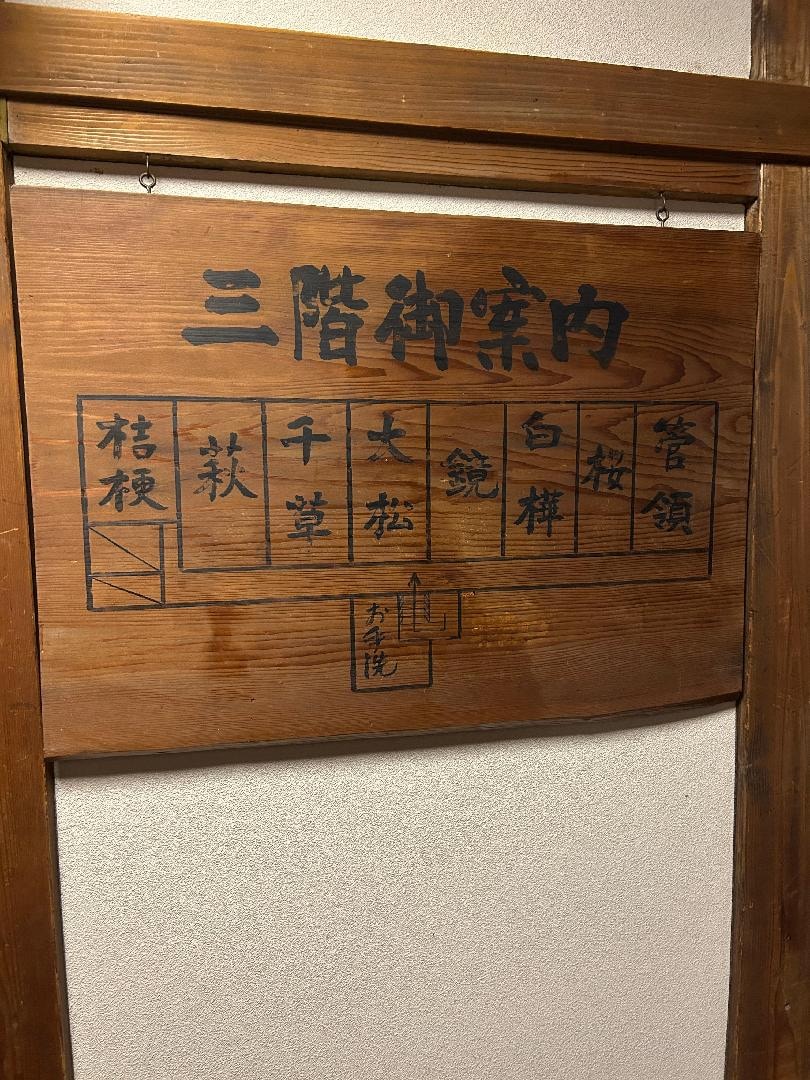 三階御案内
桔梗
萩
千草
大松
鏡
白樺
桜
管領
お手洗